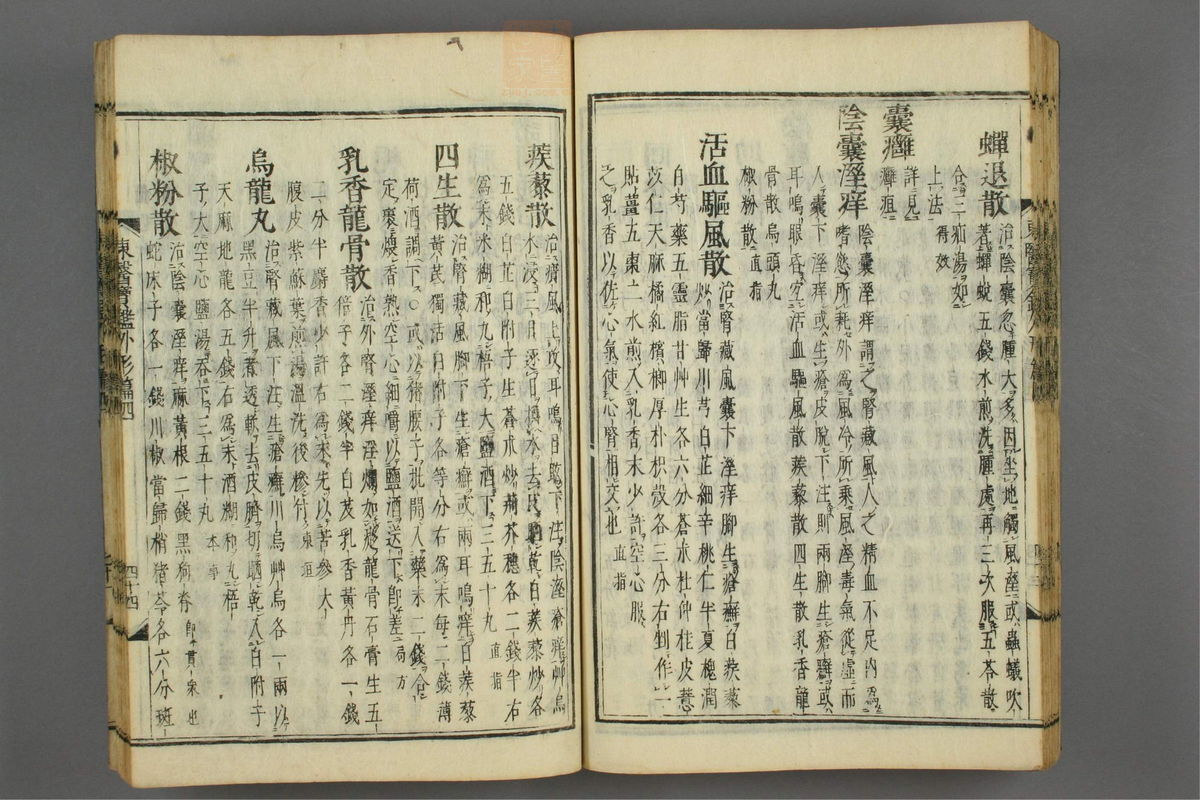 蟬退散 治陰囊忽腫大多因坐地觸風溼或蟲蟻吹
著蟬蛻五錢水煎洗腫處再三次服五苓散
合三疝湯如
上法 得效
囊癰 詳見
癰疽
陰囊溼痒 陰囊溼痒謂之腎藏風人之精血不足內爲
嗜慾所耗外爲風冷所乘風溼毒氣從虛而
入囊下溼痒或生瘡皮脫下注則兩腳生瘡癬或
耳鳴眼昏宜活血驅風散蒺藜散四生散乳香龍
骨散烏頭丸
椒粉散 直指
活血驅風散 治腎藏風囊下溼痒腳生瘡癬白蒺藜
炒當歸川芎白芷細辛桃仁半夏槐潤
白芍藥五靈脂甘艸生各六分蒼朮杜仲桂皮薏
苡仁天麻橘紅檳榔厚朴枳殼各三分右剉作一
貼薑五棗二水煎入乳香末少許空心服
之乳香以佐心氣使心腎相交也 直指
蒺藜散 治癩風上攻耳鳴目眩下注陰溼瘡痒艸烏
水浸三日逐日換水去皮曬黃白蒺藜炒各
五錢白芷白附子生蒼朮炒荊芥穗各二錢半右
爲末米糊和丸梧子大鹽酒下三五十丸 直指
四生散 治腎藏風腳下生瘡癬或兩耳鳴痒白蒺藜
黃芪獨活白附子各等分右爲末每二錢薄
荷酒調下○或以猪腰子批開入藥末二錢合
定裹煨香熟空心細嚼以鹽酒送下卽差 局方
乳香龍骨散 治外腎溼痒淫爛如瘡龍骨石膏生五
倍子各二錢半白芨乳香黃丹各一錢
二分半麝香少許右爲末先以苦參大
腹皮紫蘇葉煎湯溫洗後糝付 東垣
烏龍丸 治腎藏風下注生瘡癬川烏艸烏各一兩以
黑豆半升煮透軟去皮臍切曬乾入白附子
天麻地龍各五錢右爲末酒糊和丸梧
子大空心鹽湯吞下三五十丸 本事
椒粉散 治陰囊溼痒麻黃根二錢黑狗脊卽貫衆也
蛇床子各一錢川椒當歸梢猪苓各六分斑
東醫寶鑑外形篇四
四十四